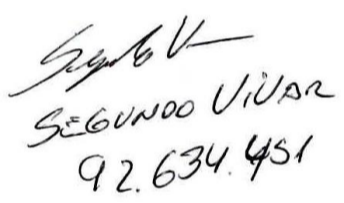 SEGUNDO VIVAR
92.634.451